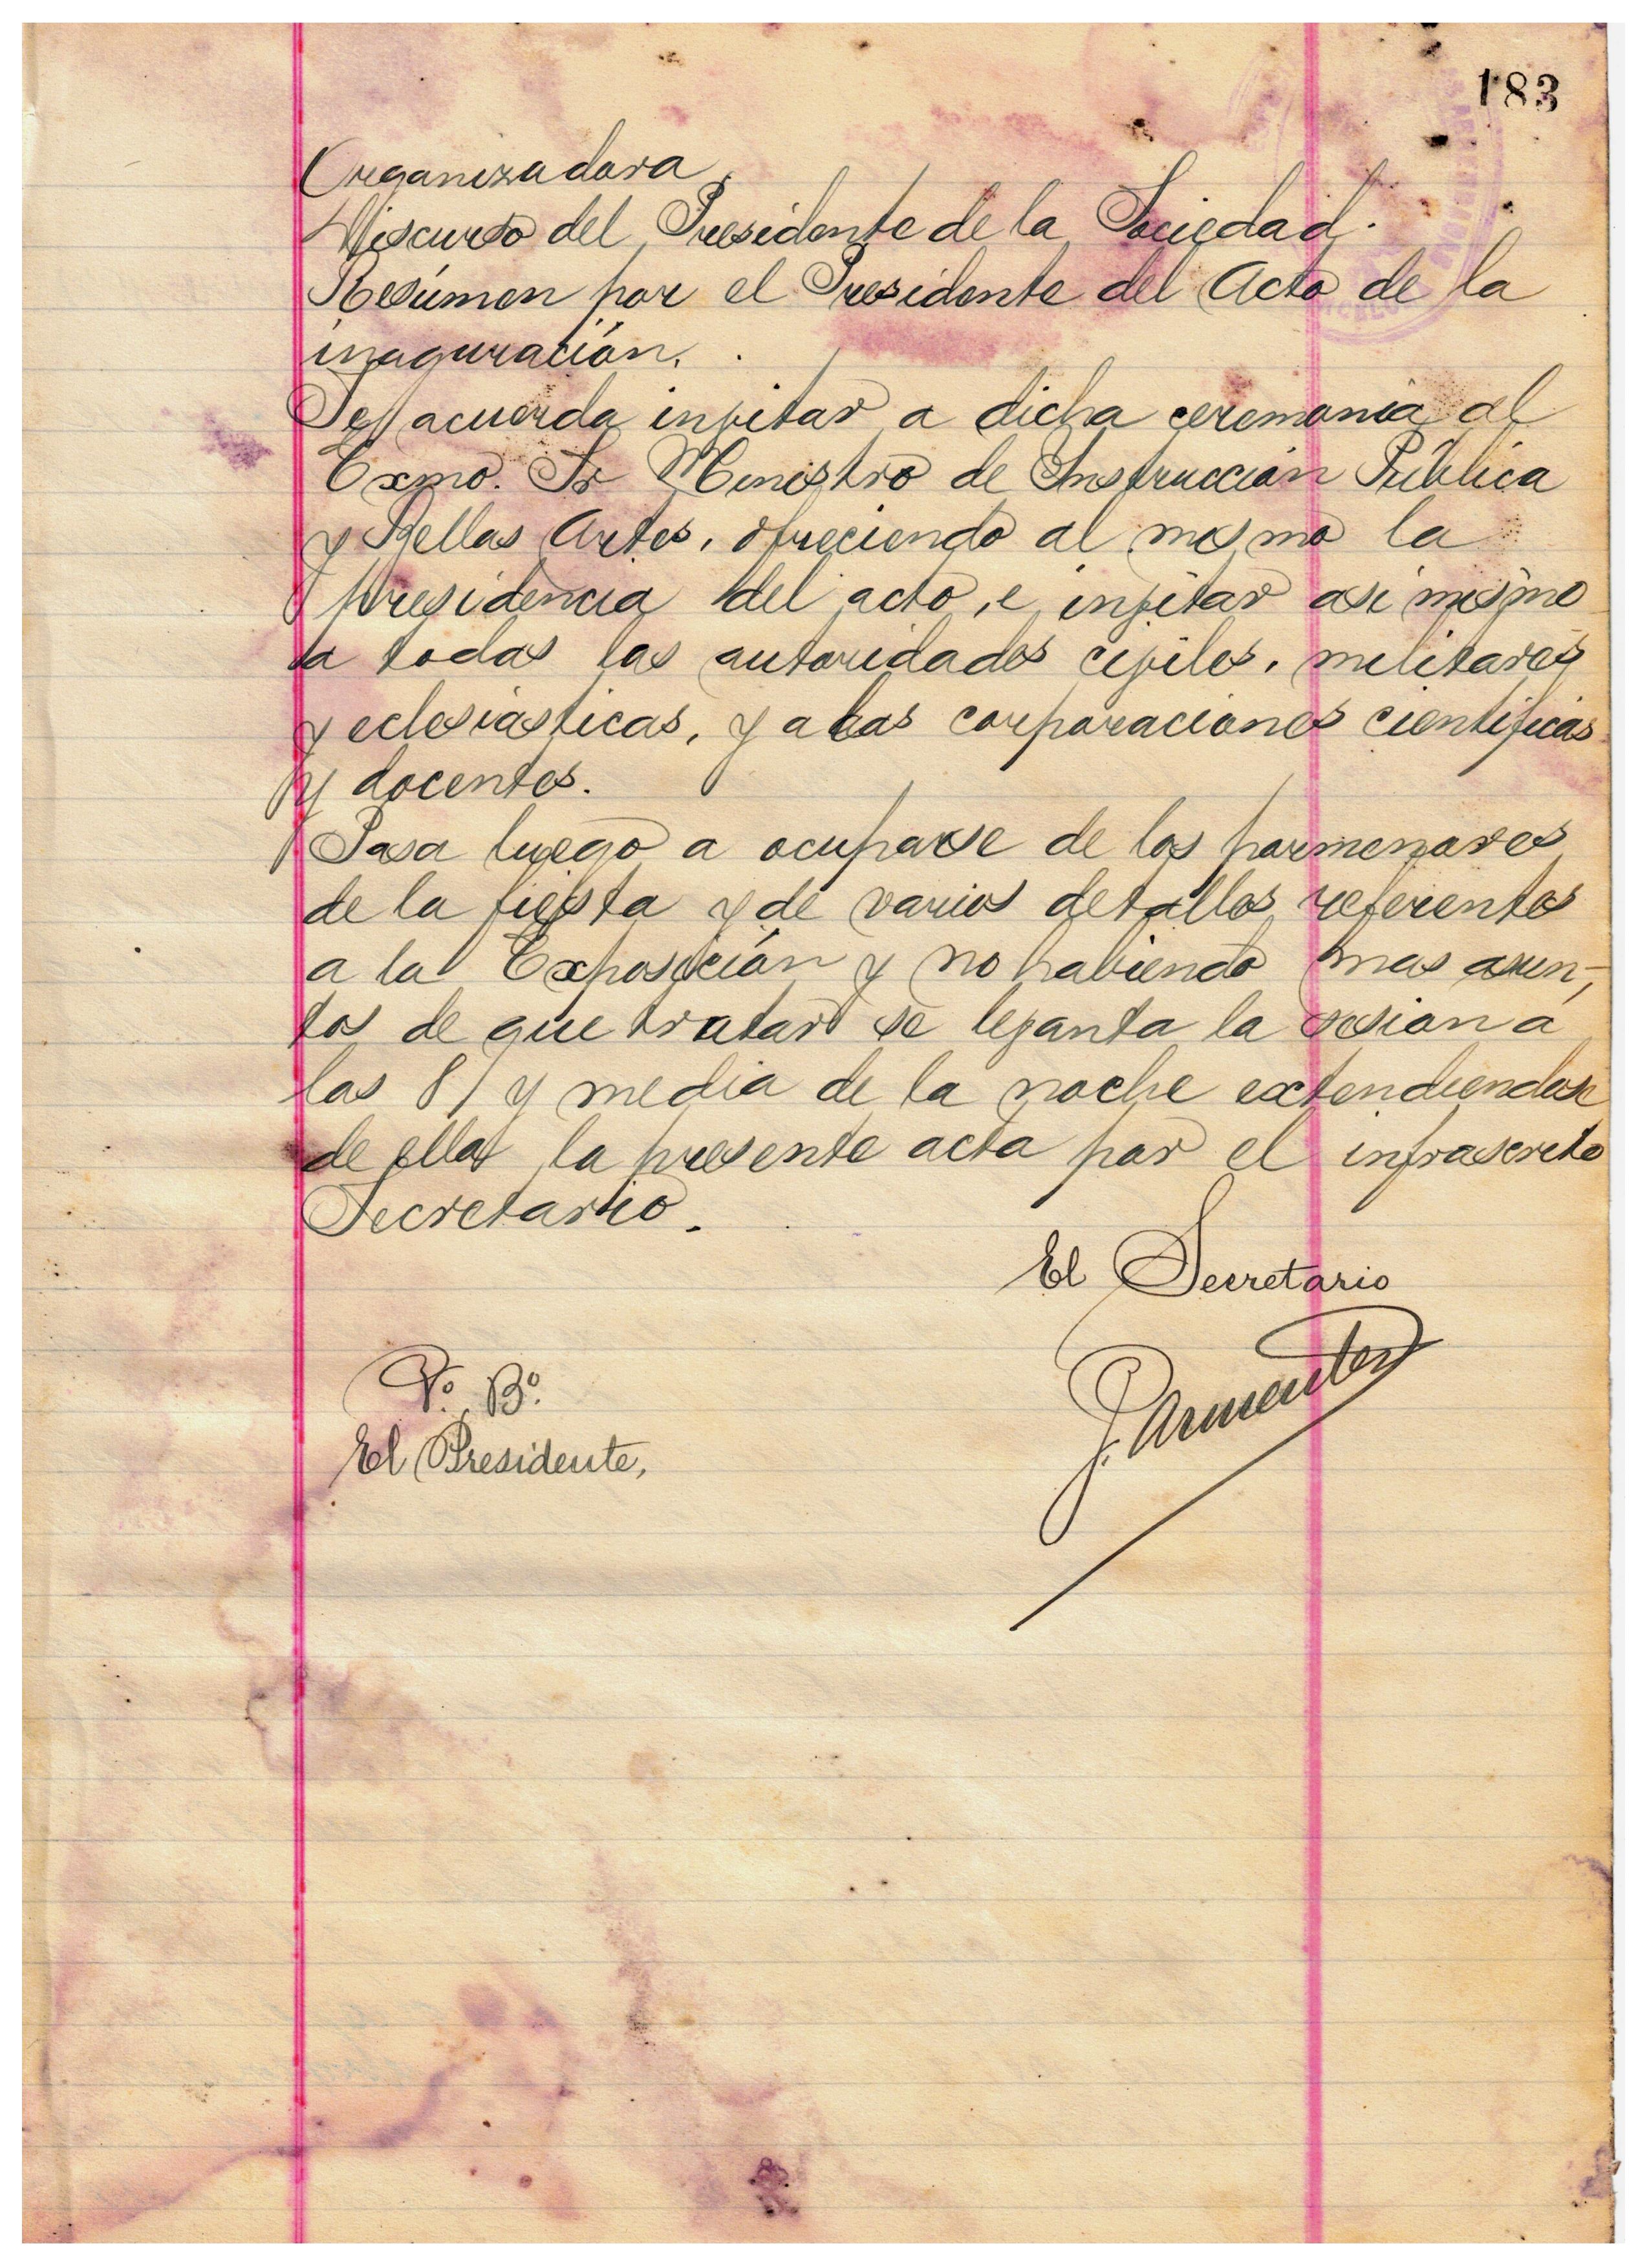 183
Organizadora.
Discurso del Presidente de la Sociedad.
Resúmen por el Presidente del Acto de la
inaguración.
Se acuerda invitar a dicha ceremonia al
Exmo. Sr Ministro de Instrucción Pública
y Bellas Artes, ofreciendo al mismo la
presidencia del acto, e invitar asi mismo
a todas las autoridades civiles, militares
y eclesiásticas, y a las corporaciones cientificas
y docentes.
Pasa luego a ocuparse de los pormenores
de la fiesta y de varios detalles referentes
a la Exposición y no habiendo mas asun-
tos de que tratar se levanta la sesion a
las 8 y media de la noche extendiendose
de ella la presente acta por el infrascrito
Secretario.
El Secretario
J. Armenter
Vº. Bº.
El Presidente,